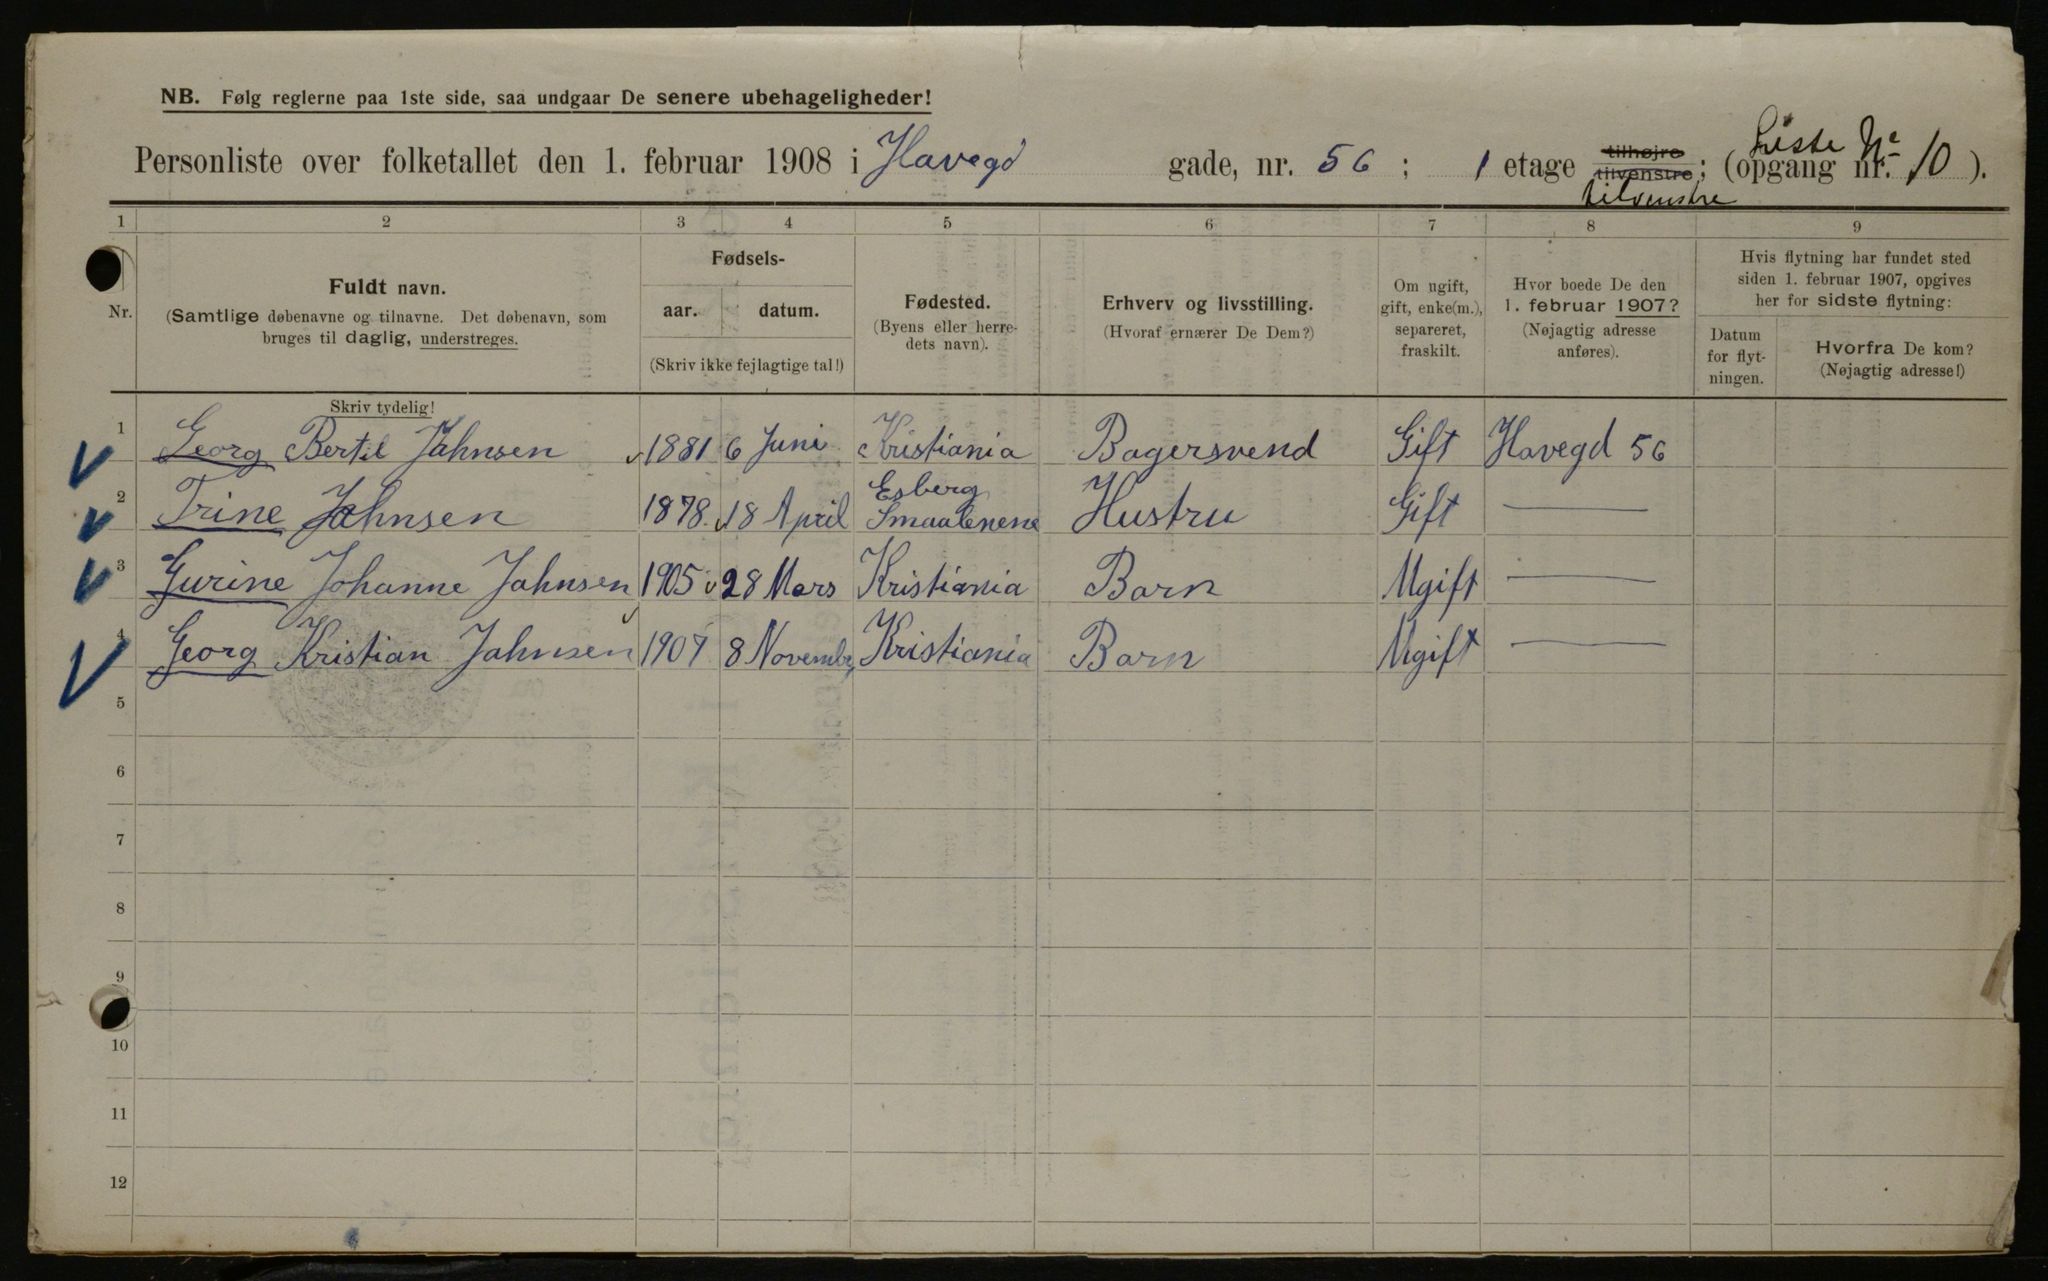 NB. Følg reglerne paa 1ste side, saa undgaar De senere ubehageligheder!
Personliste over folketallet den 1. februar 1908 i Havegd gade, nr. 56; 1 etage tilhøjre tilvenstre; (opgang nr. 10).
Liste No
tilvenstre
1 2 3 4 5 6 7 8 9
Nr.
Fuldt navn.
(Samtlige døbenavne og tilnavne. Det døbenavn, som
bruges til daglig, understreges.
Fødsels-
aar. datum.
(Skriv ikke fejlagtige tal!)
Fødested.
(Byens eller herre-
dets navn).
Erhverv og livsstilling.
(Hvoraf ernærer De Dem?)
Om ugift,
gift, enke(m.),
separeret,
fraskilt.
Hvor boede De den
1. februar 1907?
(Nøjagtig adresse
anføres).
Hvis flytning har fundet sted
siden 1. februar 1907, opgives
her for sidste flytning:
Datum
for flyt-
ningen.
Hvorfra De kom?
(Nøjagtig adresse!)
Skriv tydelig!
1 Georg Bertil Jahnsen 1881 6 Juni Kristiania Bagersvend Gift Havegd 56
2 Trine Jahnsen 1878 18 April Esberg Smaalenene Hustru Gift —
3 Gurine Johanne Jahnsen 1905 28 Mars Kristiania Barn Ugift —
4 Georg Kristian Jahnsen 1907 8 Novembr, Kristiania Barn Ugift —
5
6
7
8
9
10
11
12